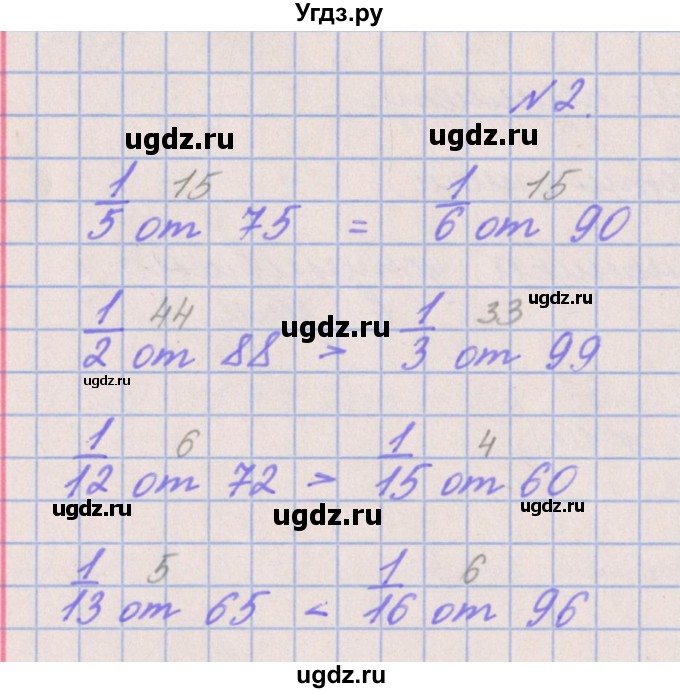 Угдз.ру
№2.
ugdz.ru ugdz.ru
15 15
1/5 от 75 = 1/6 от 90
ugdz.ru
44 33
ugdz.ru
1/2 от 88 > 1/3 от 99
ugdz.ru
6 4
1/12 от 72 > 1/15 от 60
ugdz.ru ugdz.ru ugdz.ru
5 6
1/13 от 65 < 1/16 от 96
ugdz.ru